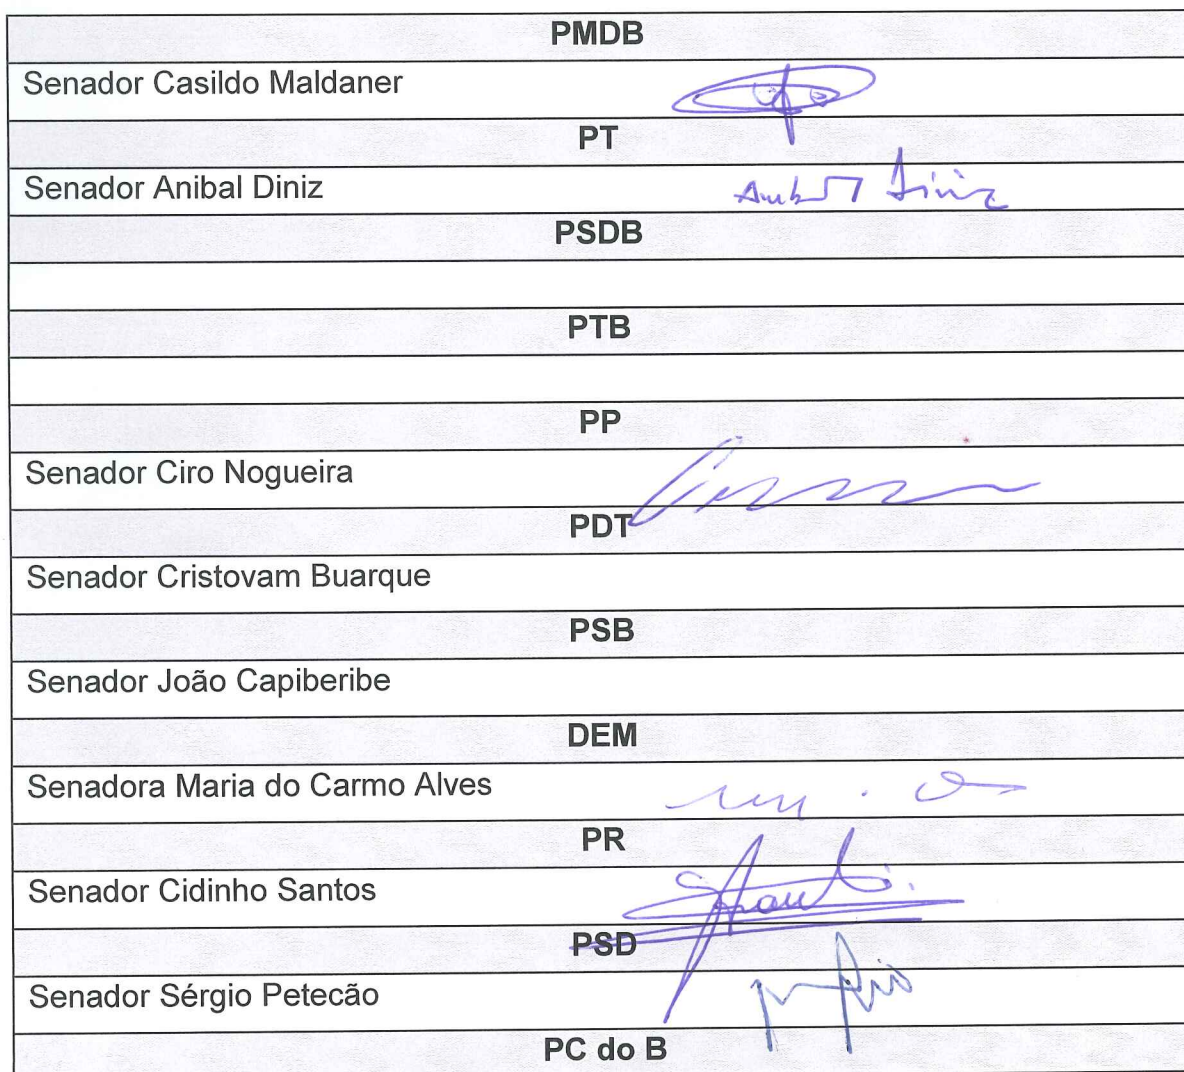 PMDB
Senador Casildo Maldaner
PT
Senador Anibal Diniz
Diniz
PSDB
PTB
PP
Senador Ciro Nogueira
PDT
Senador Cristovam Buarque
PSB
Senador João Capiberibe
DEM
Senadora Maria do Carmo Alves
PR
Senador Cidinho Santos
PSD
Senador Sérgio Petecão
PC do B